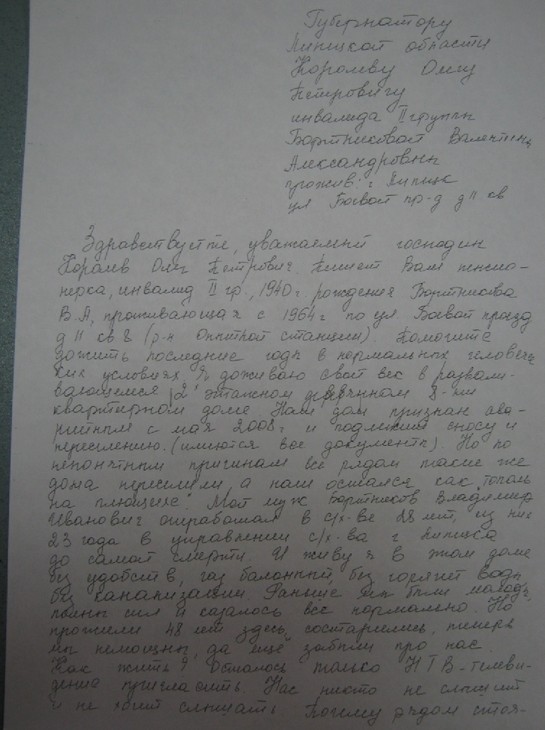 Губернатору
Липецкой области
Королеву Олегу
Петровичу
инвалида II группы
Бортниковой Валентины
Александровны
прожив: г Липецк
ул Боевой пр-д д 11 кв
Здравствуйте, уважаемый господин
Королев Олег Петрович. Пишет Вам пенсио-
нерка, инвалид II гр., 1940г рождения Бортникова
В.А, проживающая с 1964г по ул. Боевой проезд
д 11 кв 8 (р-н Опытной станции). Помогите
дожить последние годы в нормальных человечес
ких условиях. Я доживаю свой век в развали-
вающемся 2х этажном деревянном 8-ми
квартирном доме Наш дом признан ава-
рийным с мая 2008г и подлежит сносу и
переселению. (имеются все документы). Но по
непонятным причинам все рядом такие же
дома переселили, а наш остался как "тополь
на плющихе". Мой муж Бортников Владимир
Иванович отработал в с/х-ве 48 лет, из них
23 года в управлении с/х-ва г Липецка
до самой смерти. И живу я в этом доме
без удобств, газ балонный, без горячей воды
без канализации. Раньше мы были молоды,
полны сил и казалось все нормально. Но
прожили 48 лет здесь, состарились, теперь
мы немощны, да ещё забыли про нас.
Как жить? Осталось только НТВ-телеви-
дение пригласить. Нас никто не слышит
и не хочет слышать. Почему рядом стоя-